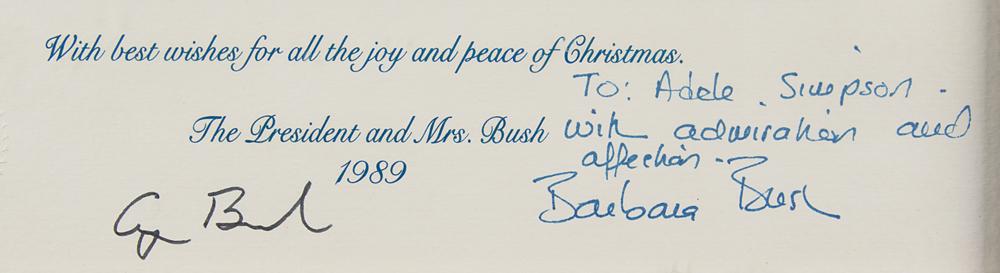 With best wishes for all the joy and peace of Christmas.
To: Adele Simpson -
The President and Mrs. Bush
with admiration and
affection -
1989
George Bush
Barbara Bush